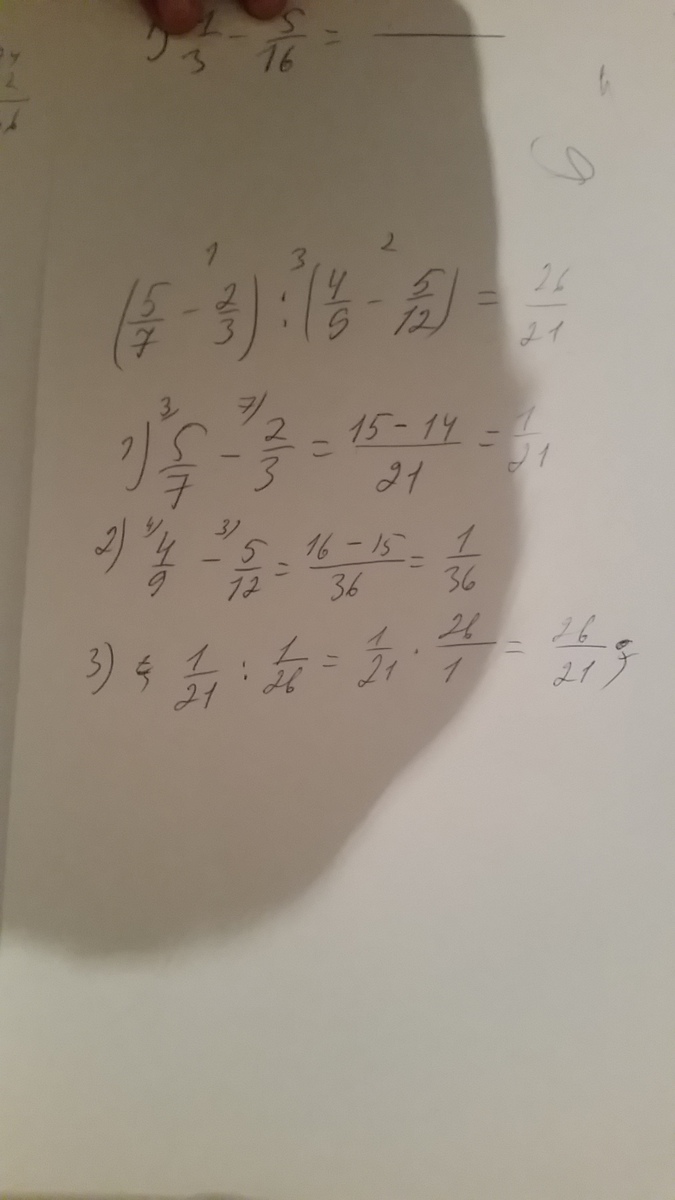 1) 1/3 - 5/16 =
(5/7 - 2/3) : (4/9 - 5/12) = 26/21
1) 5/7 - 2/3 = 15-14/21 = 1/21
2) 4/9 - 5/12 = 16-15/36 = 1/36
3) 1/21 : 1/26 = 1/21 · 26/1 = 26/21;